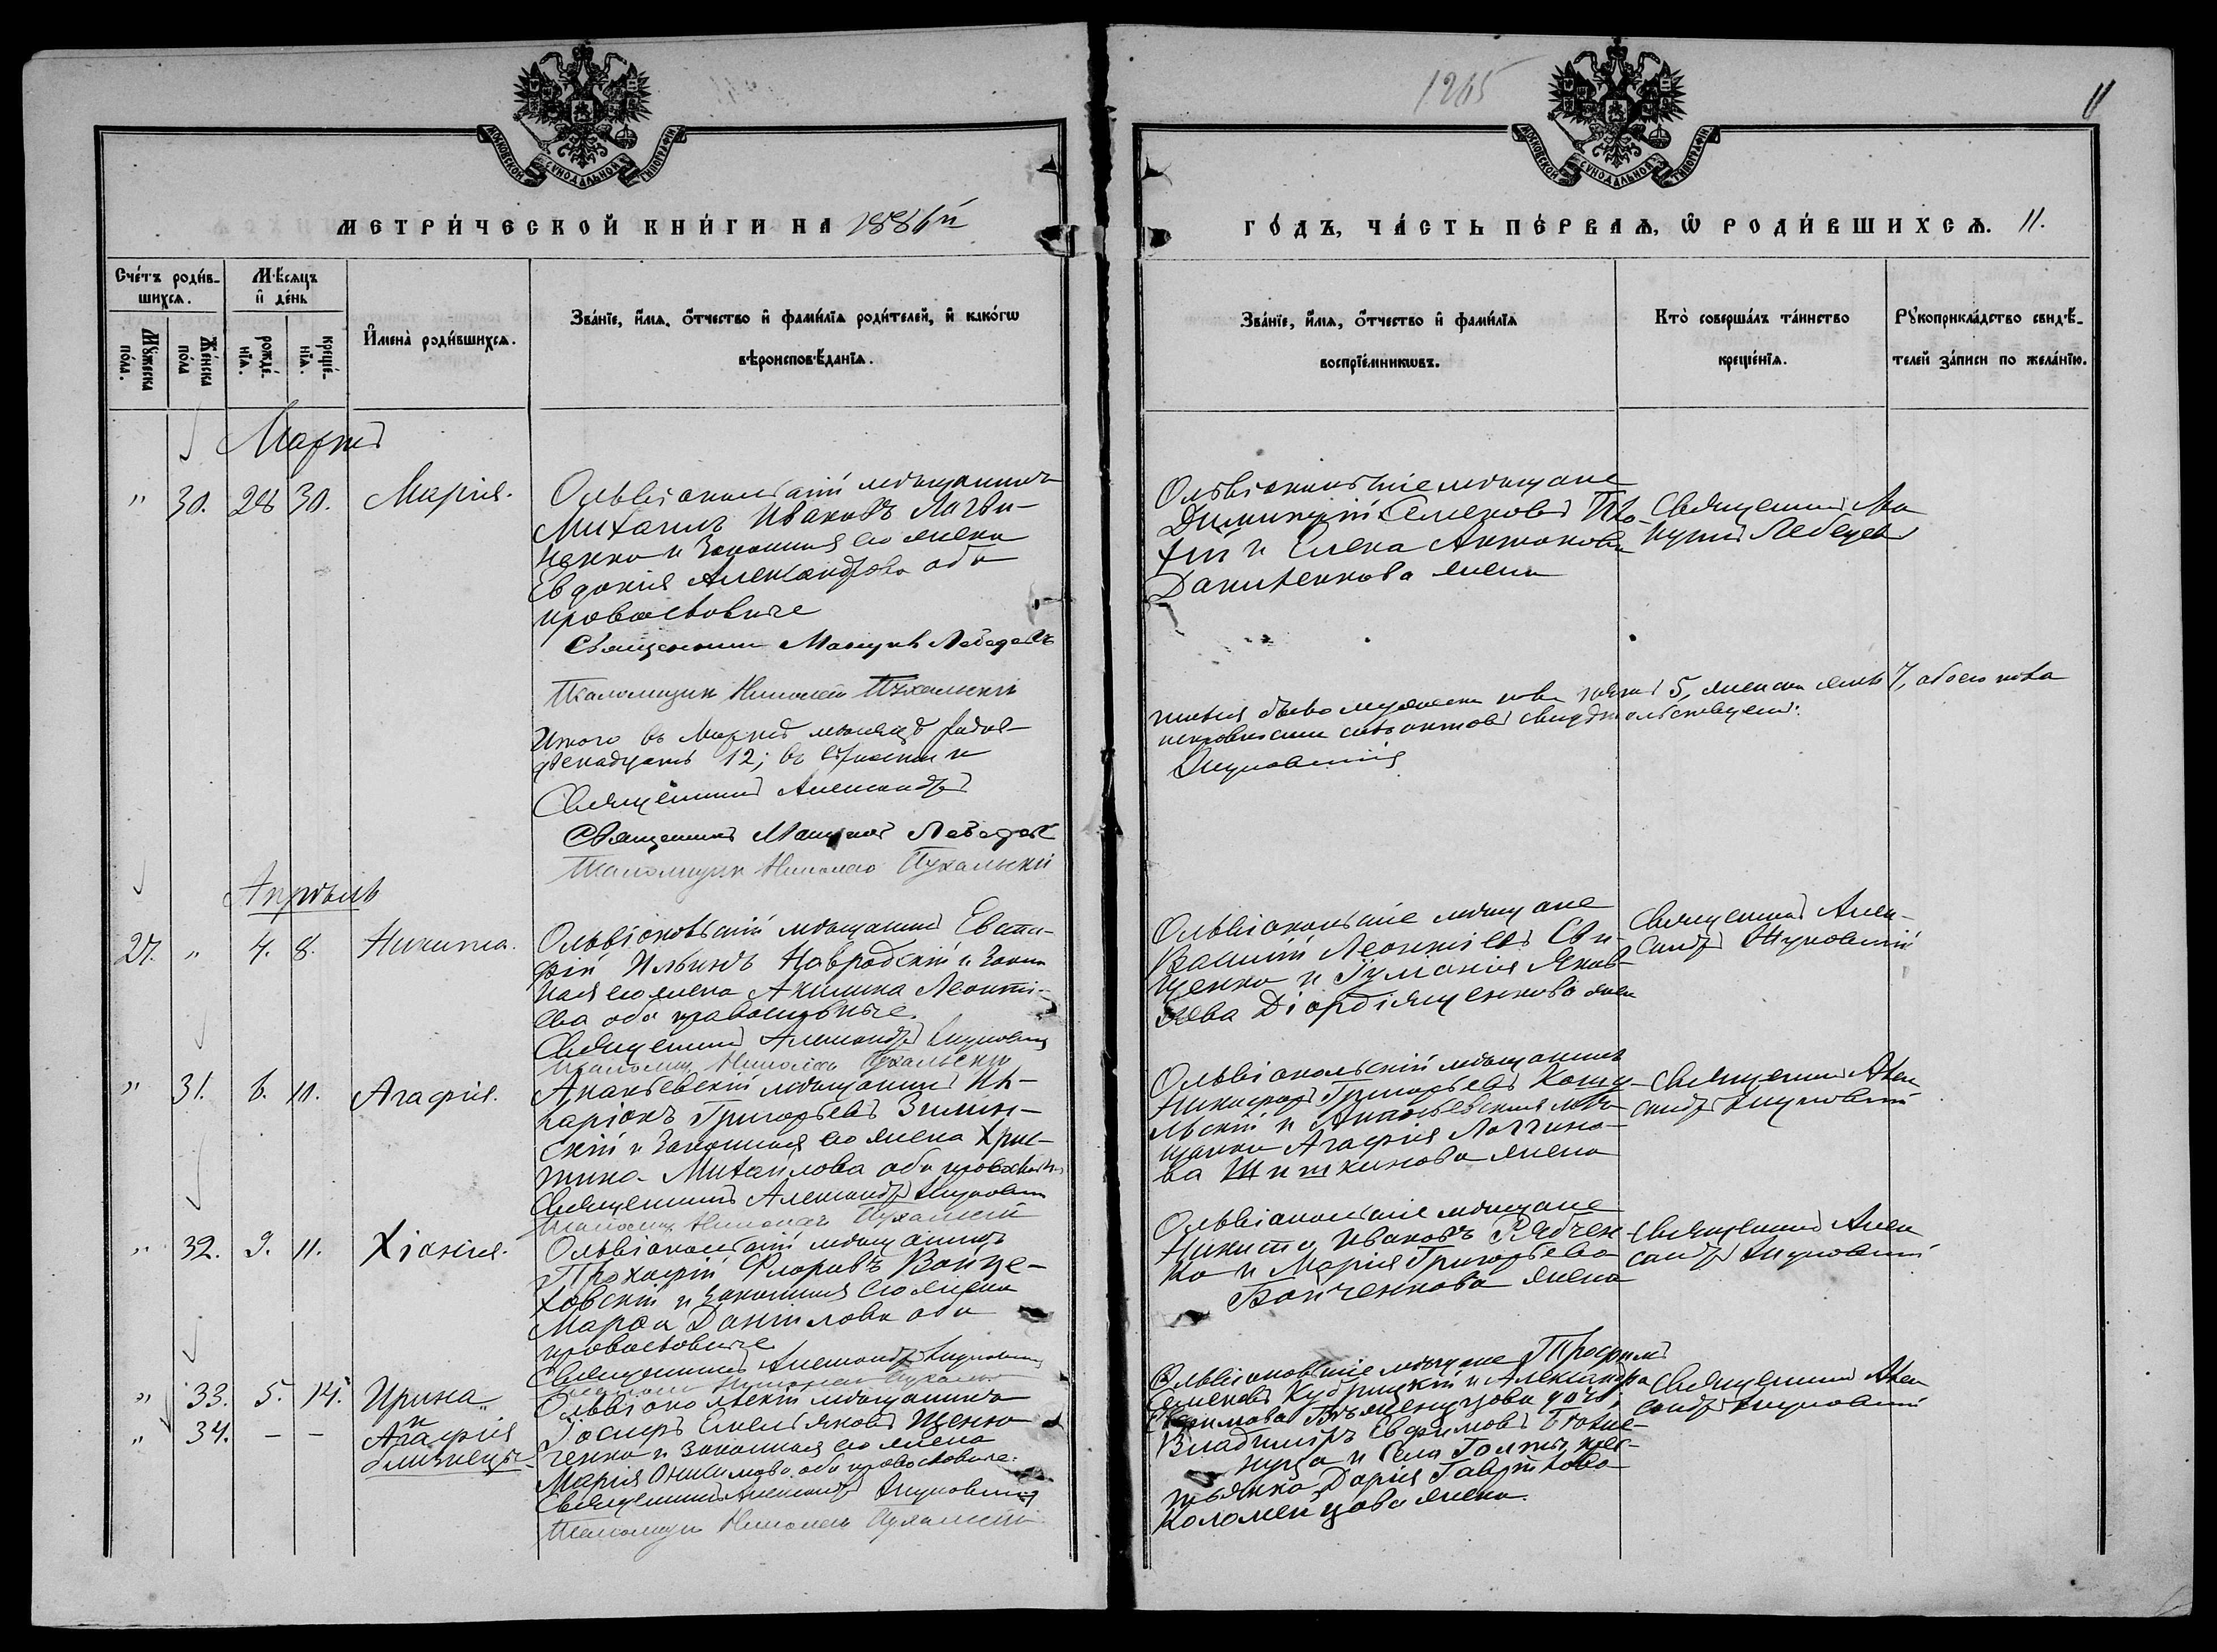 1265
11
МОСКОВСКОЙ СУНОДАЛЬНОЙ ТИПОГРАФІИ
МОСКОВСКОЙ СУНОДАЛЬНОЙ ТИПОГРАФІИ
МЕТРИ́ЧЕСКОЙ КНИ́ГИ НА 1886й
ГО́ДЪ, ЧА́СТЬ ПЕ́РВАѦ, Ѡ РОДИ́ВШИХСѦ. 11.
Сче́тъ роди́в-
шихсѧ.
Мꙋ́жеска по́ла.
Же́нска по́ла
Мѣ́сѧцъ
и҆ де́нь
рожде́-
нїѧ.
креще́-
нїѧ.
И҆мена̀ роди́вшихсѧ.
Зва́нїе, и҆́мѧ, ѻ҆́тчество и҆ фами́лїѧ роди́телей, и҆ како́гѡ
вѣроисповѣ́данїѧ.
Зва́нїе, и҆́мѧ, ѻ҆́тчество и҆ фами́лїѧ
воспрїе́мникѡвъ.
Кто̀ соверша́лъ та́инство
креще́нїѧ.
Рꙋкоприкла́дство свидѣ́-
телей за́писи по жела́нїю.
Мартъ
" 30. 28 30. Марія.
Ольвіопольскій мѣщанинъ
Михаилъ Ивановъ Логви-
ненко и законная его жена
Евдокія Александрова оба
православные
Священникъ Мануилъ Лебедевъ
Псаломщикъ Николай Пухальскій
Ольвіопольскіе мѣщане
Димитрій Семеновъ
и Елена Антонова
жена
Священникъ Ма-
нуилъ Лебедевъ
Итого въ Мартѣ мѣсяцѣ родив-
двенадцать 12; въ
шихся было мужеска пола 5, женска семь 7, обоего пола
свидѣтельствуемъ:
Священникъ Александръ
Жуковскій
Священникъ Мануилъ Лебедевъ
Псаломщикъ Николай Пухальскій
Апрѣль
27. " 4. 8. Никита.
Ольвіопольскій мѣщанинъ Евста-
фій Ильинъ Навродскій и закон-
ная его жена Акилина Леонті-
ева оба православные.
Священникъ Александръ Жуковскій
Псаломщ. Николай Пухальскій
Ольвіопольскіе мѣщане
Василій Леонтіевъ Сви-
щенко и Іуліанія Яков-
лева Діордіященкова жена
Священникъ Алек-
сандръ Жуковскій
" 31. 6. 10. Агафія.
Ананьевскій мѣщанинъ Ил-
ларіонъ Григорьевъ Зимин-
скій и законная его жена Хрис-
тина Михайлова оба православные
Священникъ Александръ Жуковскій
Псаломщ. Николай Пухальскій
Ольвіопольскій мѣщанинъ
Никифоръ Григорьевъ
льскій и Ананьевская мѣ-
щанка Агафія Логгино-
ва Шишкинова жена
Священникъ Алек-
сандръ Жуковскій
" 32. 9. 11. Хіонія.
Ольвіопольскій мѣщанинъ
Прокофій Флоровъ Войце-
ховскій и законная его жена
Марѳа Даніилова оба
православные
Священникъ Александръ Жуковскій
Ольвіопольскіе мѣщане
Никита Ивановъ Рябчен-
ко и Марія Григорьева
Бойченкова жена
Священникъ Алек-
сандръ Жуковскій
" 33. 5. 14. Ирина
и
" 34. — — Агафія
близнецы
Ольвіопольскій мѣщанинъ
Іосифъ Емельяновъ
ченко и законная его жена
Марія Онисимова оба православные.
Священникъ Александръ Жуковскій
Псаломщикъ Николай Пухальскій
Ольвіопольскіе мѣщане Трофимъ
Семеновъ Кудрицкій и Александра
Ефимова дочь,
Владиміръ Евфимовъ
и села Голты крес-
тьянка Дарія Гаврилова
Коломейцова жена.
Священникъ Алек-
сандръ Жуковскій